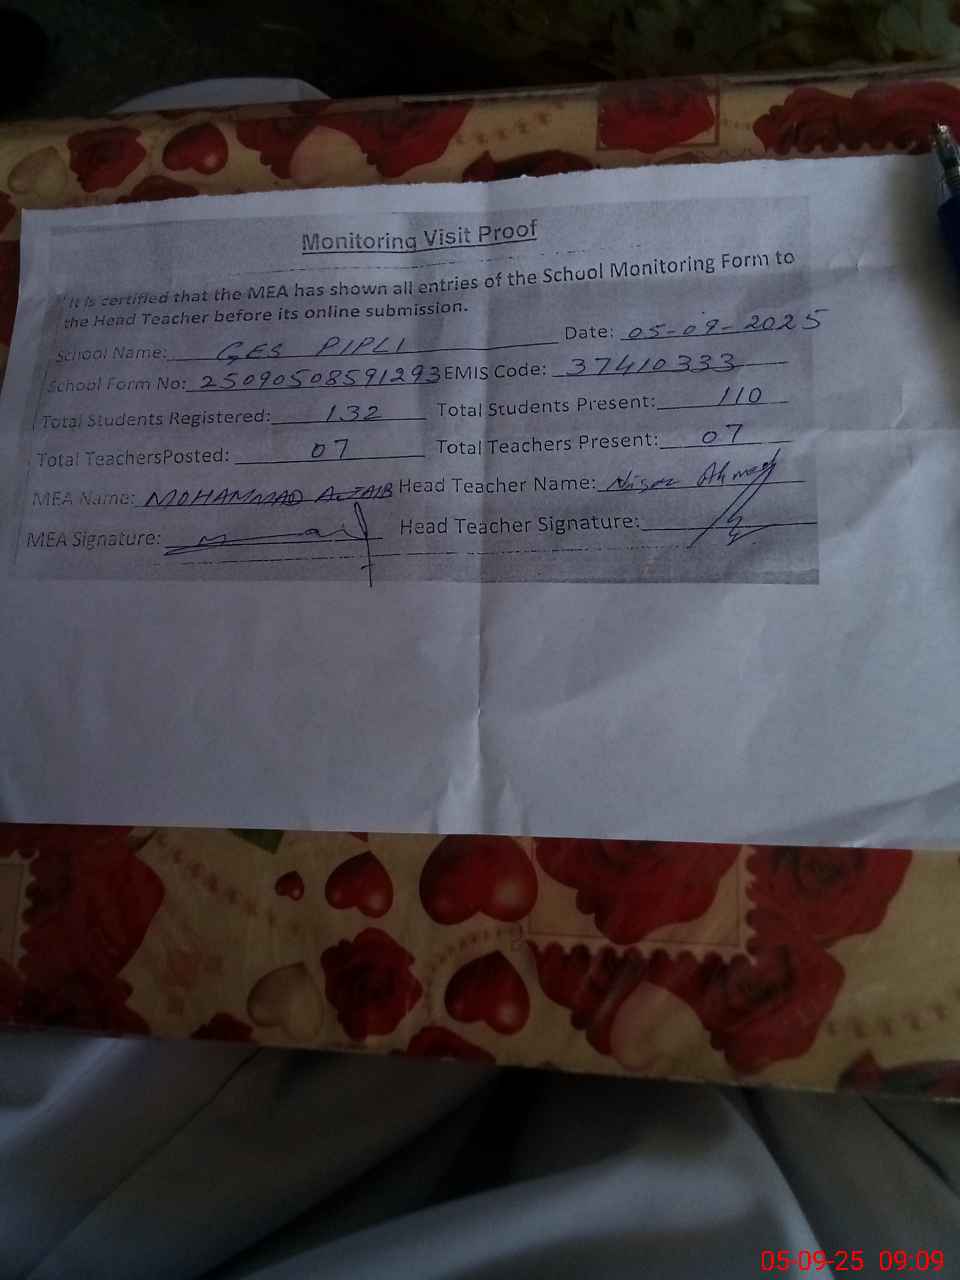 Monitoring Visit Proof
"It is certified that the MEA has shown all entries of the School Monitoring Form to
the Head Teacher before its online submission.
School Name: GES PIPLI Date: 05-09-2025
School Form No: 25090508591293 EMIS Code: 37410333
Total Students Registered: 132 Total Students Present: 110
Total TeachersPosted: 07 Total Teachers Present: 07
MEA Name: MOHAMMAD Head Teacher Name: Nisar Ahmed
MEA Signature: Head Teacher Signature:
05-09-25 09:09